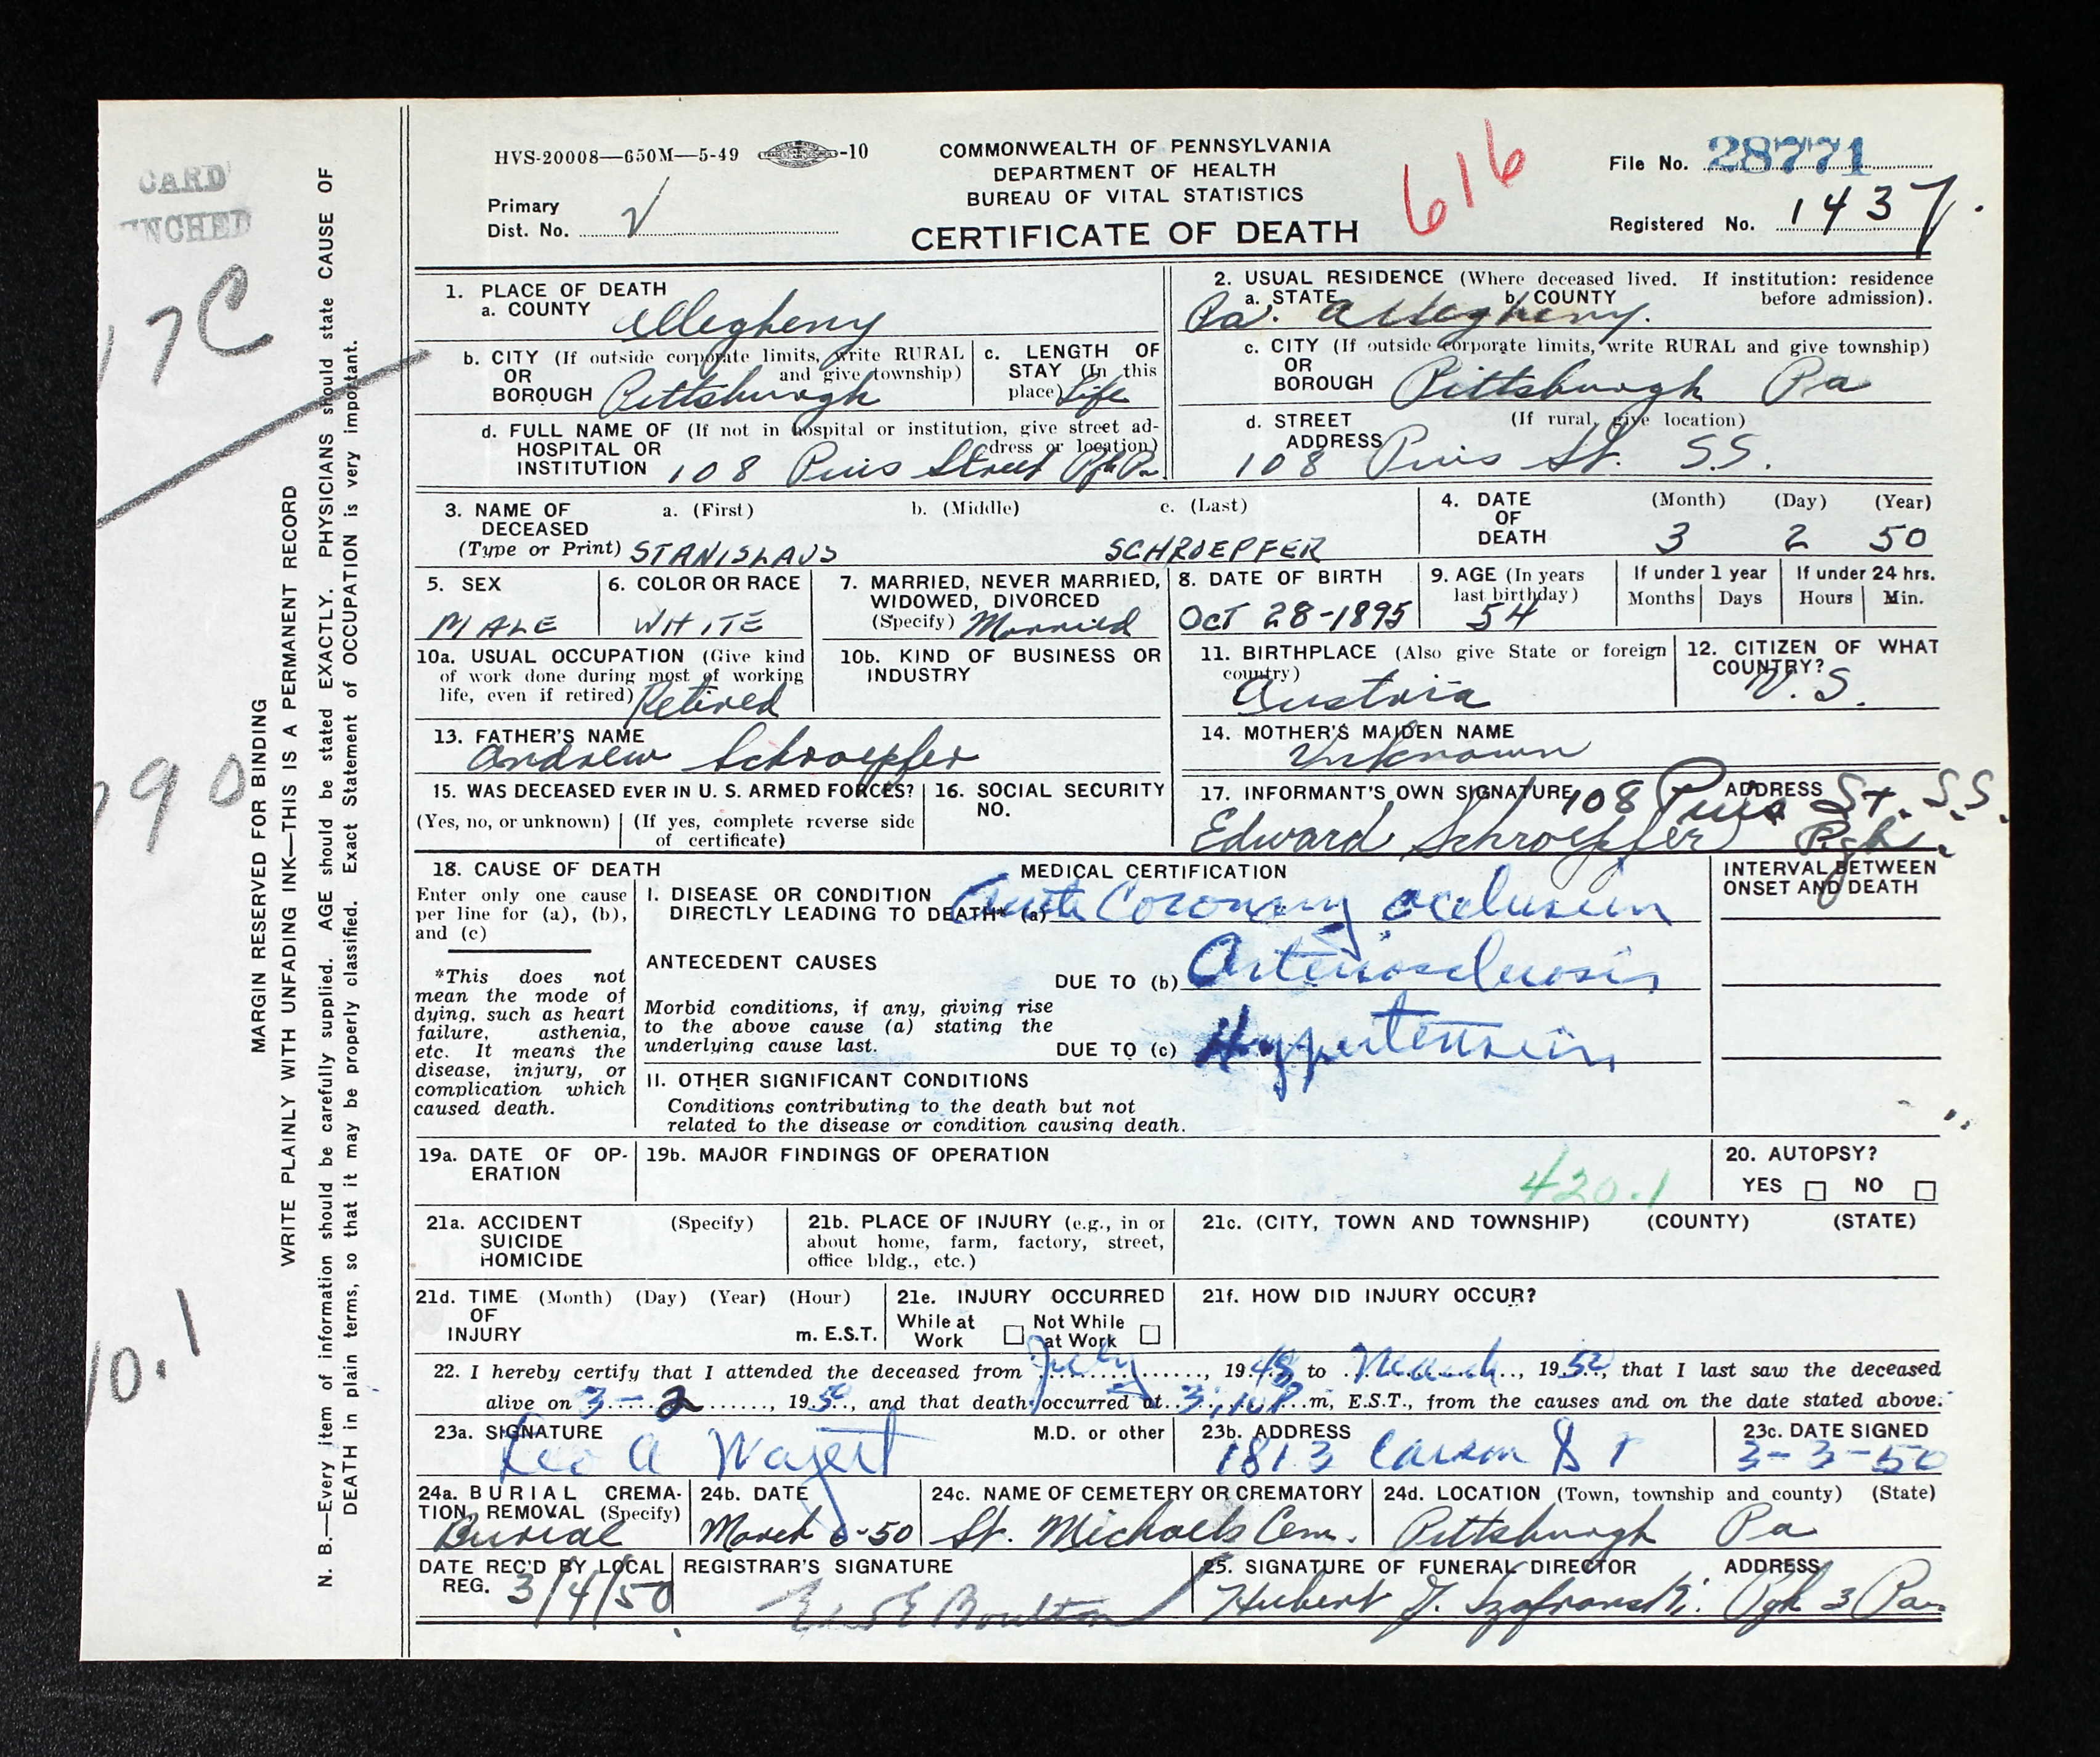 HVS-20008—650M—5-49 -10
COMMONWEALTH OF PENNSYLVANIA
DEPARTMENT OF HEALTH
BUREAU OF VITAL STATISTICS
CERTIFICATE OF DEATH
616
File No. 28771
Registered No. 1437
Primary
Dist. No.
CARD
NCHED
17C
90
0.1
MARGIN RESERVED FOR BINDING
WRITE PLAINLY WITH UNFADING INK—THIS IS A PERMANENT RECORD
N. B.—Every item of information should be carefully supplied. AGE should be stated EXACTLY. PHYSICIANS should state CAUSE OF
DEATH in plain terms, so that it may be properly classified. Exact Statement of OCCUPATION is very important.
1. PLACE OF DEATH
a. COUNTY Allegheny
2. USUAL RESIDENCE (Where deceased lived. If institution: residence
a. STATE b. COUNTY before admission).
Pa. Allegheny.
b. CITY (If outside corporate limits, write RURAL
OR and give township)
BOROUGH Pittsburgh
c. LENGTH OF
STAY (In this
place) Life
c. CITY (If outside corporate limits, write RURAL and give township)
OR
BOROUGH Pittsburgh Pa
d. FULL NAME OF (If not in hospital or institution, give street ad-
HOSPITAL OR dress or location)
INSTITUTION 108 Pius Street Pgh Pa.
d. STREET (If rural, give location)
ADDRESS
108 Pius St. S.S.
3. NAME OF a. (First) b. (Middle) c. (Last)
DECEASED
(Type or Print) STANISLAUS SCHROEPFER
4. DATE (Month) (Day) (Year)
OF
DEATH 3 2 50
5. SEX
MALE
6. COLOR OR RACE
WHITE
7. MARRIED, NEVER MARRIED,
WIDOWED, DIVORCED
(Specify) Married
8. DATE OF BIRTH
OCT 28-1895
9. AGE (In years
last birthday)
54
If under 1 year
Months Days
If under 24 hrs.
Hours Min.
10a. USUAL OCCUPATION (Give kind
of work done during most of working
life, even if retired) Retired
10b. KIND OF BUSINESS OR
INDUSTRY
11. BIRTHPLACE (Also give State or foreign
country)
Austria
12. CITIZEN OF WHAT
COUNTRY?
U.S.
13. FATHER'S NAME
Andrew Schroepfer
14. MOTHER'S MAIDEN NAME
Unknown
15. WAS DECEASED EVER IN U. S. ARMED FORCES?
(Yes, no, or unknown) (If yes, complete reverse side
of certificate)
16. SOCIAL SECURITY
NO.
17. INFORMANT'S OWN SIGNATURE ADDRESS
108 Pius St. S.S.
Edward Schroepfer Pgh.
18. CAUSE OF DEATH
Enter only one cause
per line for (a), (b),
and (c)
*This does not
mean the mode of
dying, such as heart
failure, asthenia,
etc. It means the
disease, injury, or
complication which
caused death.
MEDICAL CERTIFICATION
I. DISEASE OR CONDITION
DIRECTLY LEADING TO DEATH* (a) Acute Coronary occlusion
ANTECEDENT CAUSES
DUE TO (b) Arteriosclerosis
Morbid conditions, if any, giving rise
to the above cause (a) stating the
underlying cause last.
DUE TO (c) Hypertension
II. OTHER SIGNIFICANT CONDITIONS
Conditions contributing to the death but not
related to the disease or condition causing death.
INTERVAL BETWEEN
ONSET AND DEATH
19a. DATE OF OP-
ERATION
19b. MAJOR FINDINGS OF OPERATION
420.1
20. AUTOPSY?
YES NO
21a. ACCIDENT (Specify)
SUICIDE
HOMICIDE
21b. PLACE OF INJURY (e.g., in or
about home, farm, factory, street,
office bldg., etc.)
21c. (CITY, TOWN AND TOWNSHIP) (COUNTY) (STATE)
21d. TIME (Month) (Day) (Year) (Hour)
OF
INJURY m. E.S.T.
21e. INJURY OCCURRED
While at Not While
Work at Work
21f. HOW DID INJURY OCCUR?
22. I hereby certify that I attended the deceased from July, 1948 to March, 1950, that I last saw the deceased
alive on 3-2, 1950, and that death occurred at 3:10P m, E.S.T., from the causes and on the date stated above.
23a. SIGNATURE M.D. or other
Leo A Wajert
23b. ADDRESS
1813 Carson St
23c. DATE SIGNED
3-3-50
24a. BURIAL CREMA-
TION, REMOVAL (Specify)
Burial
24b. DATE
March 6-50
24c. NAME OF CEMETERY OR CREMATORY
St. Michaels Cem.
24d. LOCATION (Town, township and county) (State)
Pittsburgh Pa
DATE REC'D BY LOCAL
REG. 3/4/50
REGISTRAR'S SIGNATURE
Boulton
25. SIGNATURE OF FUNERAL DIRECTOR ADDRESS
Hubert J. Szafranski. Pgh 3 Pa.